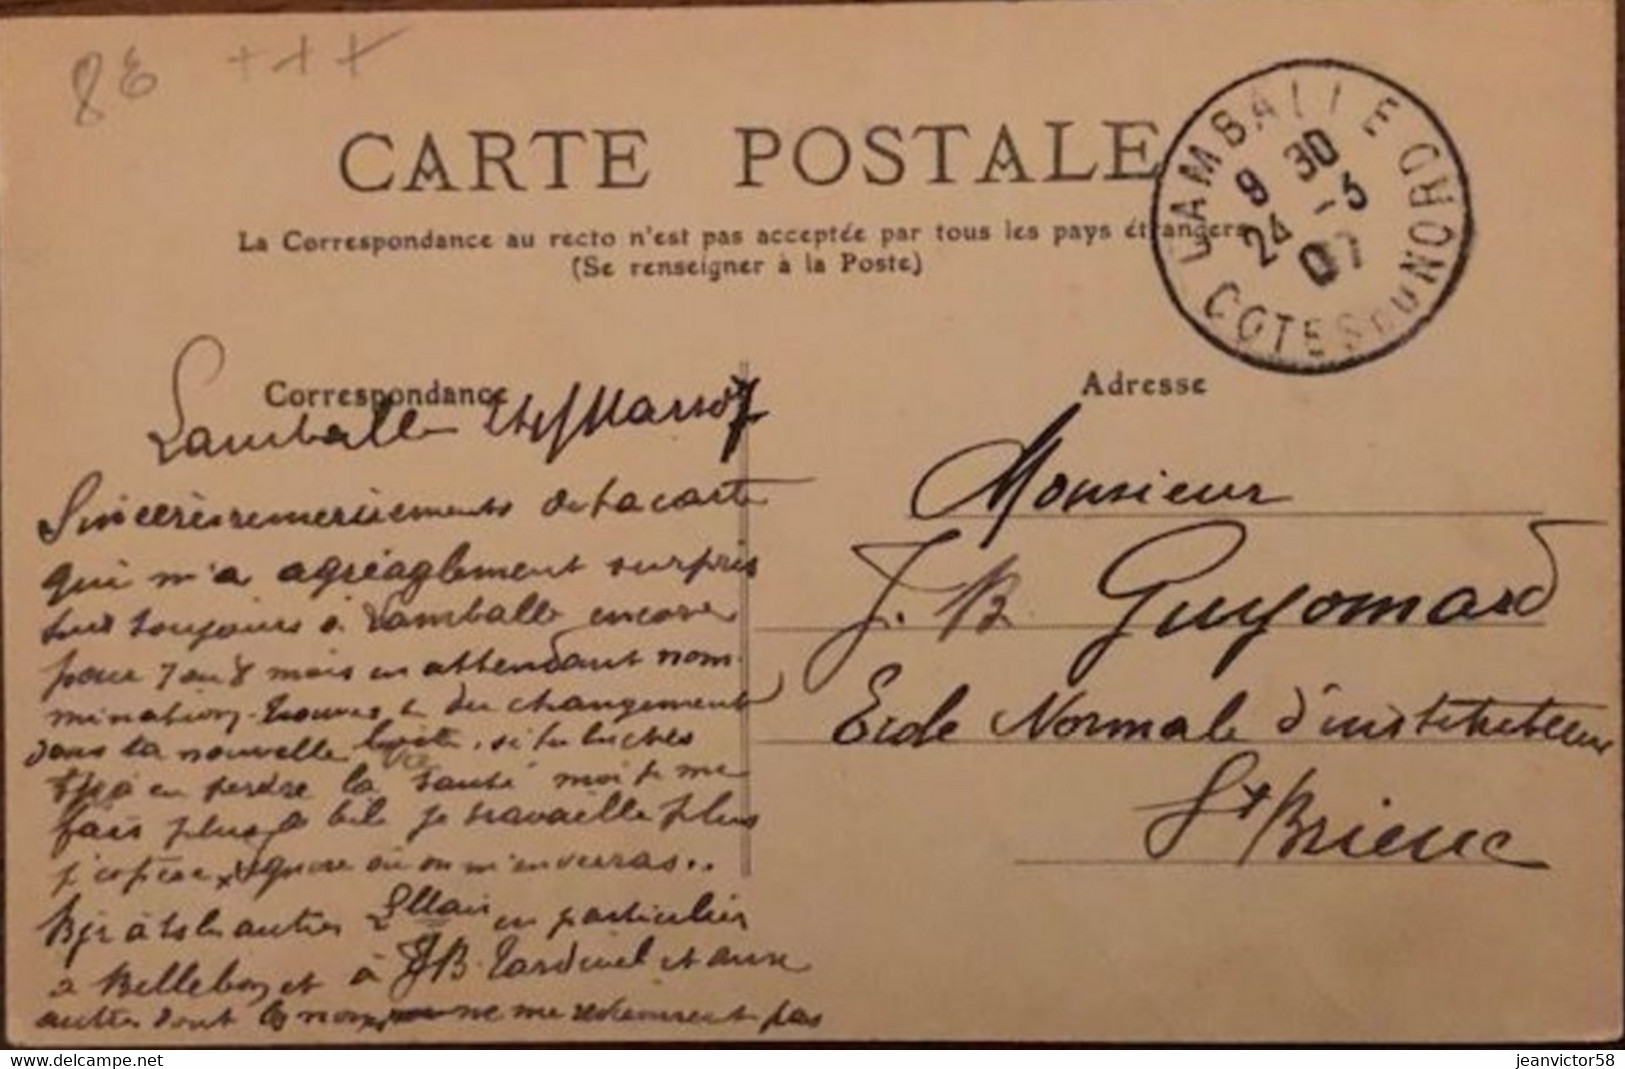 8E +++
CARTE POSTALE
La Correspondance au recto n'est pas acceptée par tous les pays étrangers
(Se renseigner à la Poste)
LAMBALLE CORD NORD
9 30
24 - 3
07
COTES DU NORD
Correspondance
Adresse
Lamballe Mars 07
Sincères remerciements de ta carte
qui m'a agréaglement surpris
suis toujours à Lamballe encore
pour 7 ou 8 mois en attendant nom-
mination. Trouves tu du changement
dans ta nouvelle si tu buches
à en perdre la santé moi je me
fais plus de bile je travaille plus
j'espère ignore où on m'enverras..
Bjr à ts les autres en particulier
à Bellebon et à JB. Tardivel et aux
autres dont les noms ne me reviennent pas
Monsieur
J. B. Guyomard
Ecole Normale d'instituteur
St Brieuc
jeanvictor58